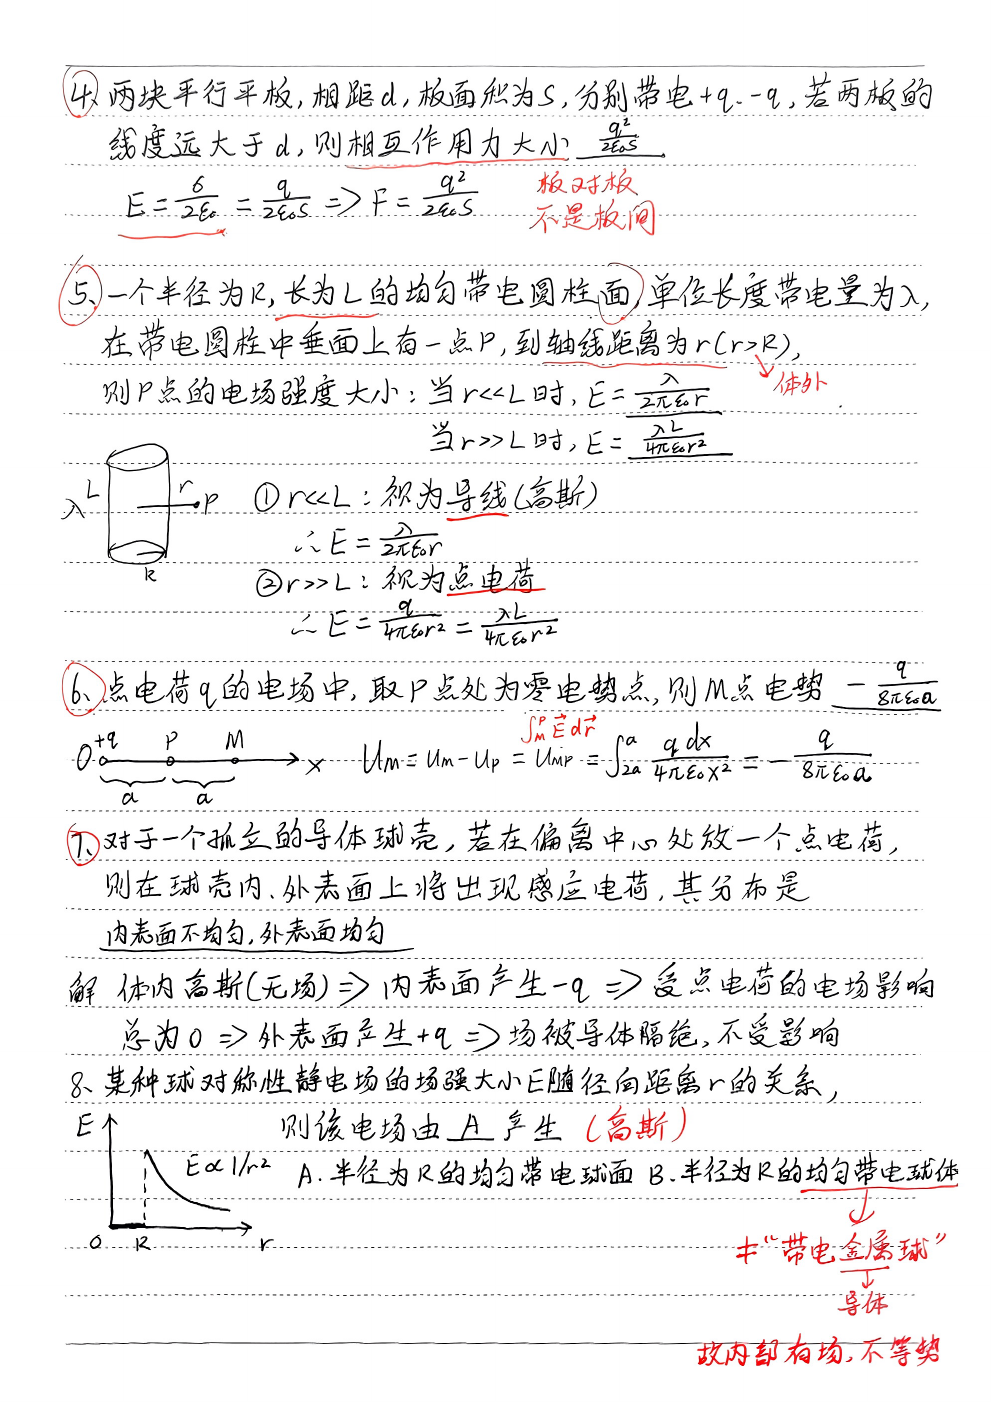 4、两块平行平板,相距d,板面积为S,分别带电+q、-q,若两板的
线度远大于d,则相互作用力大小 q²/2ε₀S
E=σ/2ε₀=q/2ε₀S => F=q²/2ε₀S
板对板
不是板间
5、一个半径为R,长为L的均匀带电圆柱面,单位长度带电量为λ,
在带电圆柱中垂面上有一点P,到轴线距离为r(r>R),
体外
则P点的电场强度大小:当r<<L时,E=λ/2πε₀r
当r>>L时,E=λL/4πε₀r²
L r P
λ
R
①r<<L:视为导线(高斯)
∴E=λ/2πε₀r
②r>>L:视为点电荷
∴E=q/4πε₀r²=λL/4πε₀r²
6、点电荷q的电场中,取P点处为零电势点,则M点电势 -q/8πε₀a
∫ₘᵖE⃗dr⃗
O +q P M x
a a
Uₘ=Uₘ-Uₚ=Uₘₚ=∫₂ₐᵃ qdx/4πε₀x²=-q/8πε₀a
7、对于一个孤立的导体球壳,若在偏离中心处放一个点电荷,
则在球壳内、外表面上将出现感应电荷,其分布是
内表面不均匀,外表面均匀
解 体内高斯(无场)=>内表面产生-q=>受点电荷的电场影响
总为0=>外表面产生+q=>场被导体隔绝,不受影响
8、某种球对称性静电场的场强大小E随径向距离r的关系,
则该电场由 A 产生 (高斯)
E
E∝1/r²
O R r
A.半径为R的均匀带电球面 B.半径为R的均匀带电球体
≠“带电金属球”
导体
故内部有场,不等势